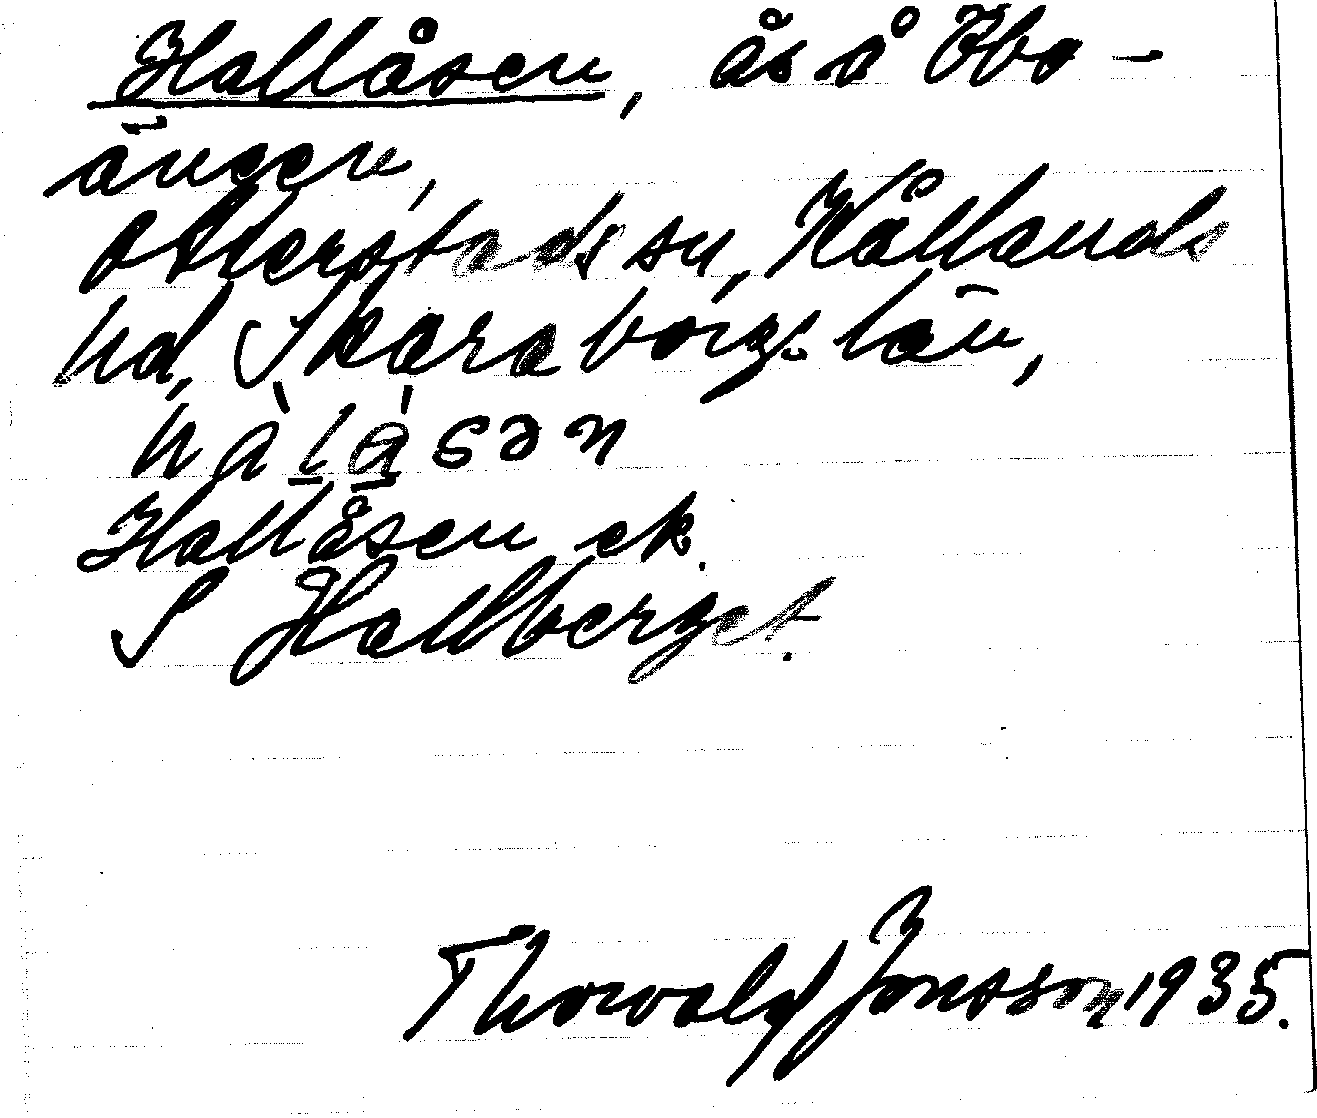 Hallåsen, ås å Ybo-
ängen,
Otterstads sn, Kållands
hd, Skaraborgs län,
Hallåsen ek.
S Hallberget.
Thorvald Jonsson 1935.